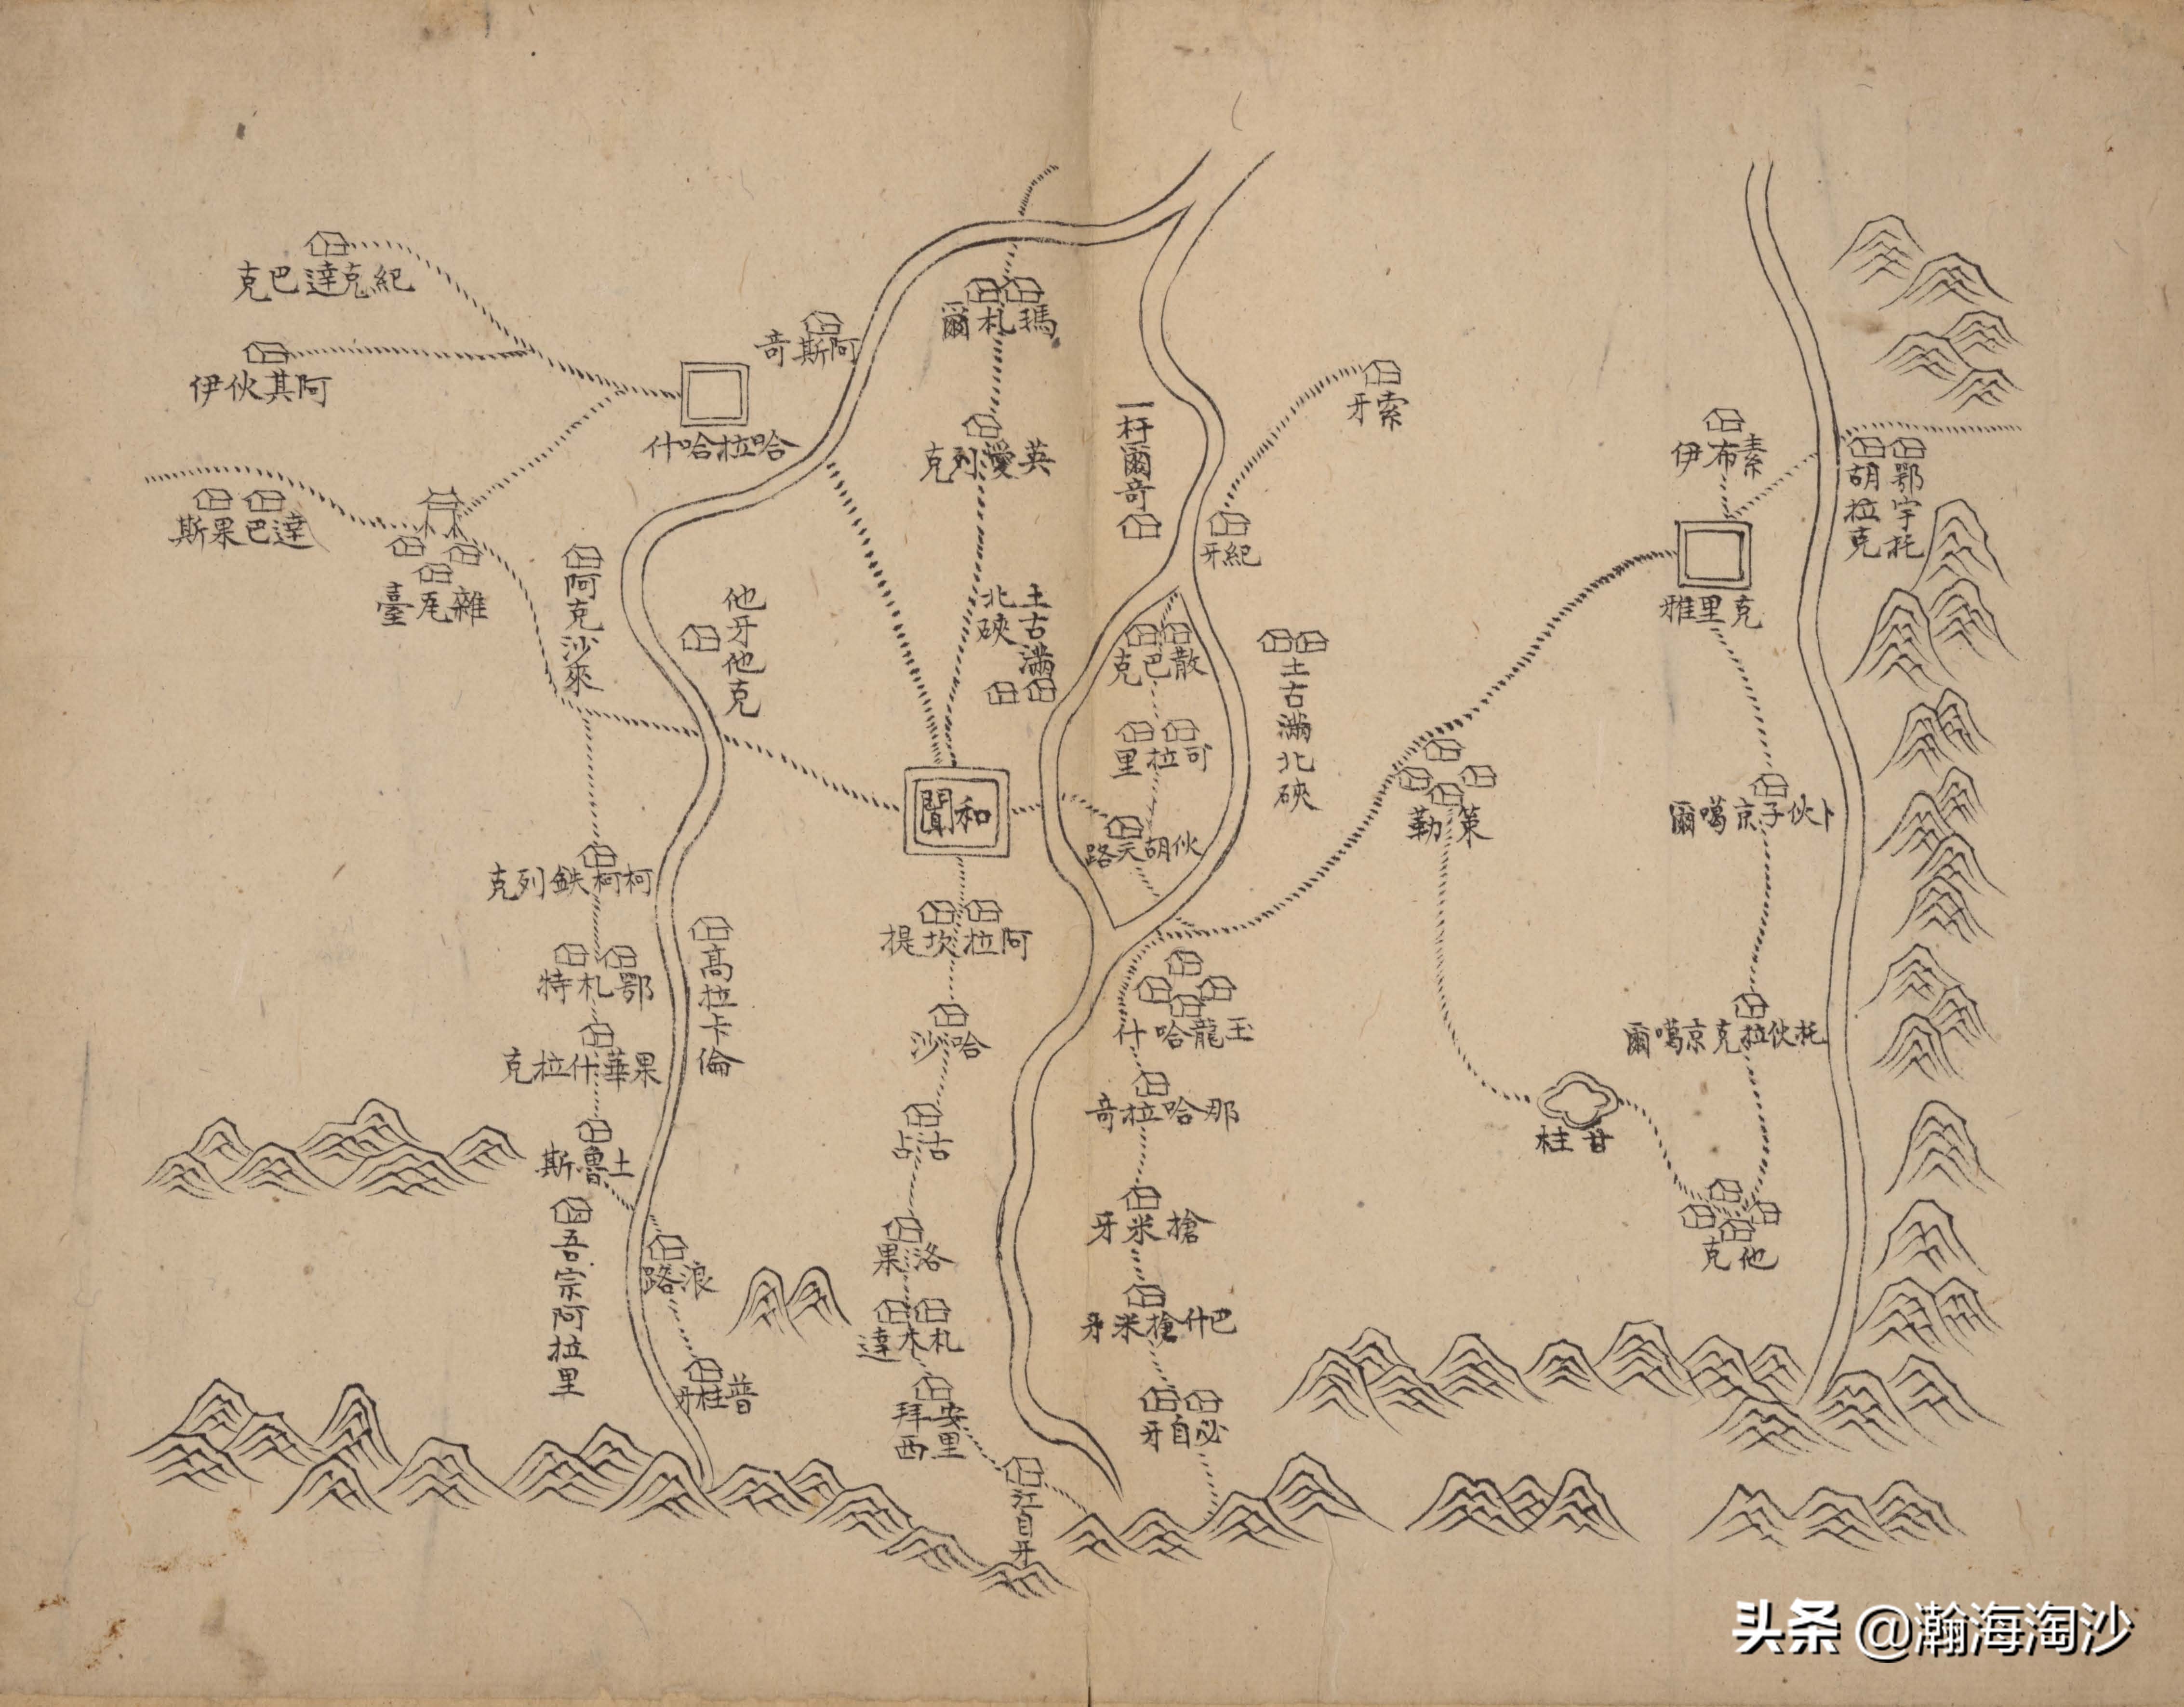 瑪札爾
紀克達巴克
阿斯奇
阿其伙伊
哈拉哈什
英愛列克
一杆爾奇
牙索
素布伊
鄂宇托
胡拉克
達巴果斯
雜瓦臺
阿克沙來
他牙他克
土古滿
北硤
紀牙
散巴克
土古滿北硤
克里雅
哥拉里
和闐
伙胡天路
策勒
卜伙子京噶爾
柯柯鉄列克
阿拉坎提
鄂札特
高拉卡倫
哈沙
玉龍哈什
托伙拉克京噶爾
果華什拉克
古占
那哈拉奇
甘桂
土魯斯
吾宗阿拉里
浪路
洛果
槍米牙
他克
札木達
巴什槍米牙
普桂牙
安里
拜西
必自牙
頭条 @瀚海淘沙